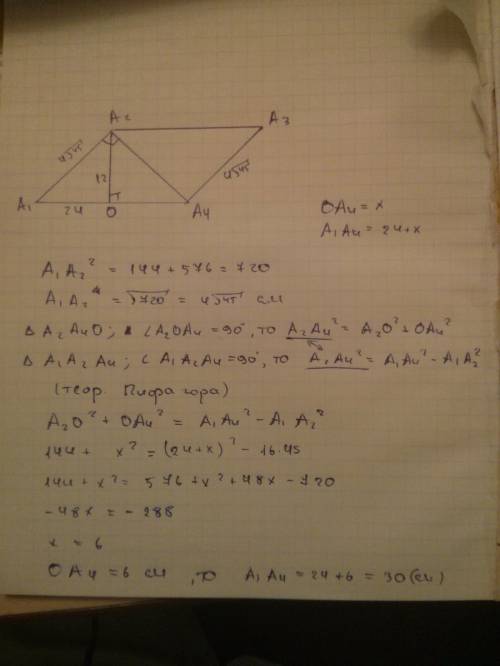 A₂
A₃
4√45
12
4√45
A₁
24
O
A₄
OA₄ = x
A₁A₄ = 24+x
A₁A₂² = 144 + 576 = 720
A₁A₂ = √720 = 4√45 см
Δ A₂A₄O; ∠A₂OA₄ = 90°, то A₂A₄² = A₂O² + OA₄²
Δ A₁A₂A₄; ∠A₁A₂A₄ = 90°, то A₂A₄² = A₁A₄² - A₁A₂²
(теор. Пифагора)
A₂O² + OA₄² = A₁A₄² - A₁A₂²
144 + x² = (24+x)² - 16·45
144 + x² = 576 + x² + 48x - 720
-48x = -288
x = 6
OA₄ = 6 см, то A₁A₄ = 24+6 = 30 (см)